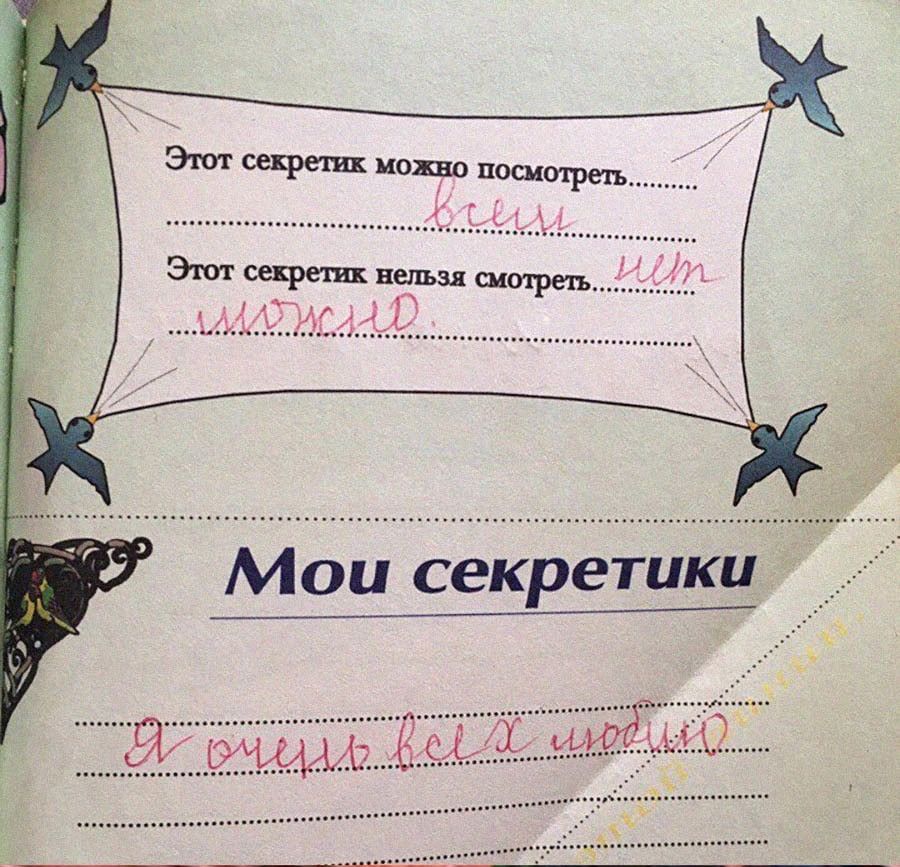 Этот секретик можно посмотреть..........
всем
Этот секретик нельзя смотреть.. нет
можно.
Мои секретики
Я очень всех люблю